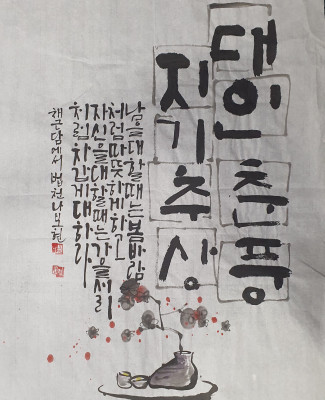 대인춘풍
지기추상
남을 대할 때는 봄바람
처럼 따뜻하게 하고
자신을 대할 때는 가을서리
처럼 차갑게 대하라
채근담에서 법천